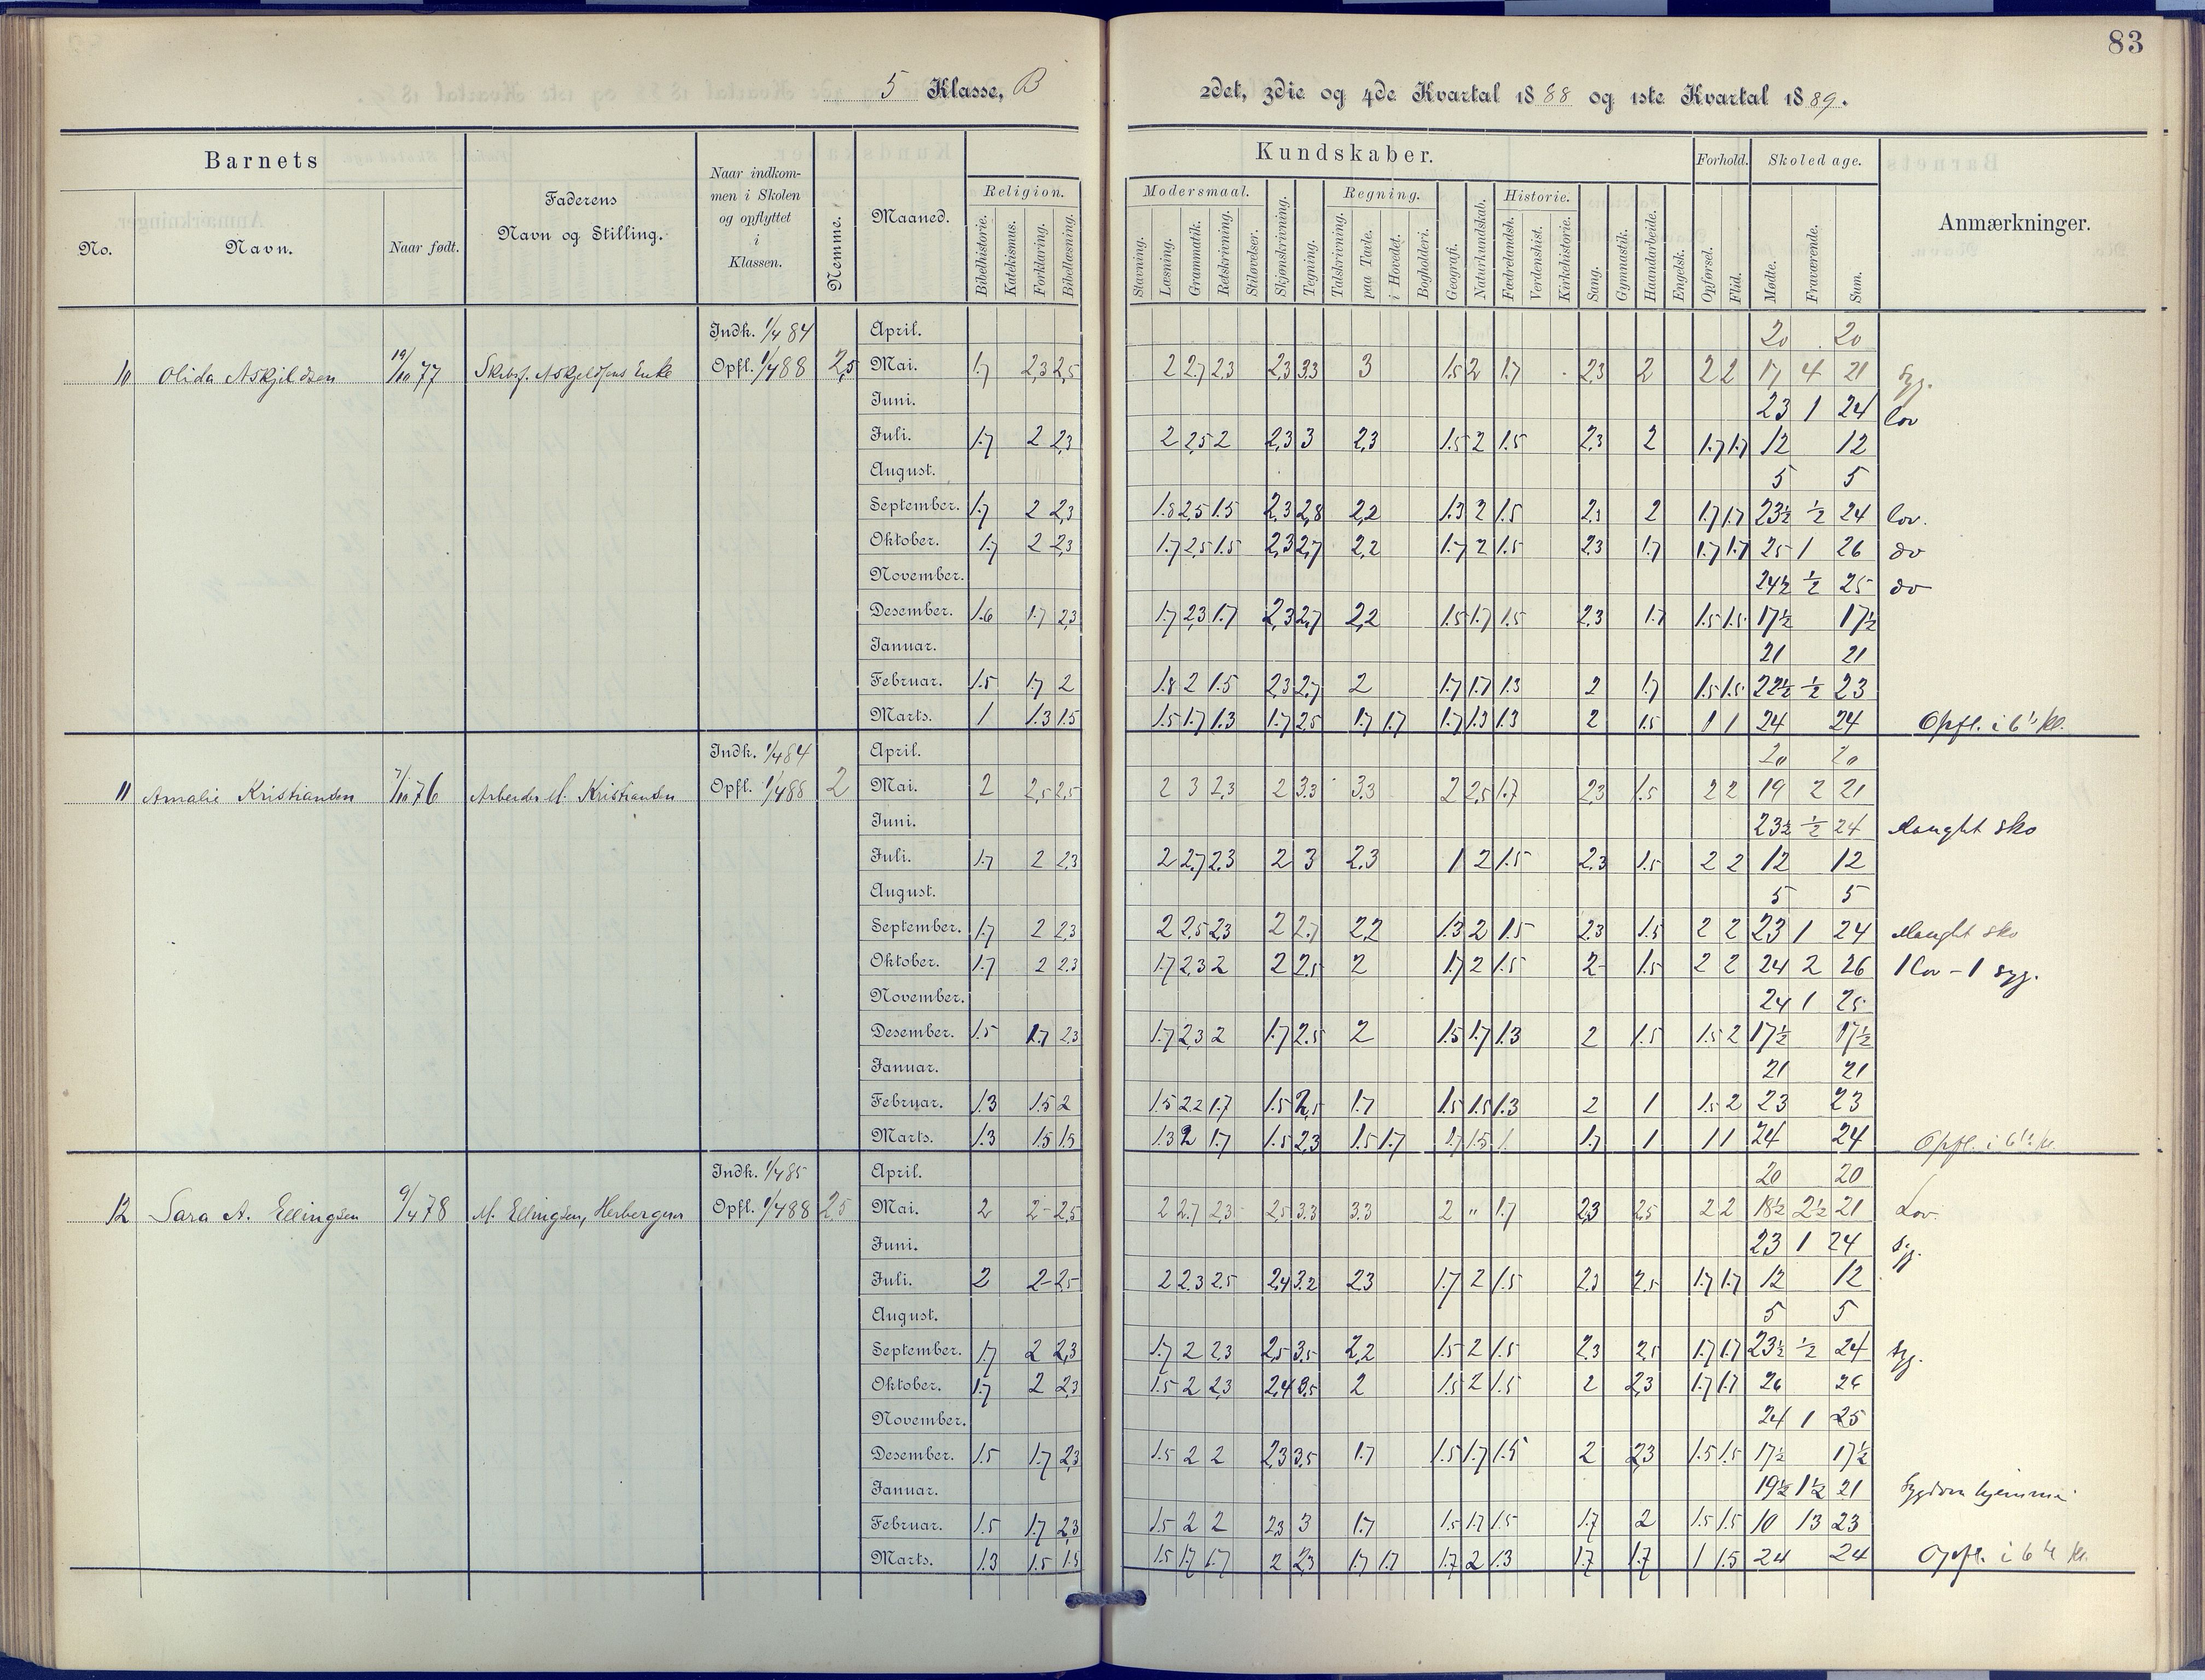 83
5 Klasse, B
2det, 3die og 4de Kvartal 1888 og 1ste Kvartal 1889.
Barnets
No.
Navn.
Naar født.
Faderens
Navn og Stilling.
Naar indkom-
men i Skolen
og opflyttet
i
Klassen.
Nemme.
Maaned.
Religion.
Bibelhistorie. Katekismus. Forklaring. Bibellæsning.
Kundskaber.
Modersmaal.
Stavning. Læsning. Grammatik. Retskrivning. Stiløvelser. Skjønskrivning. Tegning.
Regning.
Talskrivning. paa Tavle. i Hovedet. Bogholderi.
Geografi. Naturkundskab.
Historie.
Fædrelandsh. Verdenshist. Kirkehistorie.
Sang. Gymnastik. Haandarbeide. Engelsk.
Forhold.
Opførsel. Flid.
Skoledage.
Mødte. Fraværende. Sum.
Anmærkninger.
Indk. 1/4 84 April. 20 20
10 Olida Askjeldsen 19/10 77 Skibsf. Askjeldsens Enke Opfl. 1/4 88 2,5 Mai. 1.7 2,3 2,5 2 2.7 2.3 2,3 3.3 3 1.5 2 1.7 2.3 2 2 2 17 4 21 Syg.
Juni. 23 1 24 lov
Juli. 1.7 2 2,3 2 2,5 2 2,3 3 2,3 1.5 2 1.5 2.3 2 1.7 1.7 12 12
August. 5 5
September. 1.7 2 2,3 1.8 2.5 1.5 2.3 2,8 2,2 1.3 2 1.5 2.3 2 1.7 1.7 23½ ½ 24 lov.
Oktober. 1.7 2 2,3 1.7 2.5 1.5 2,3 2,7 2,2 1.7 2 1.5 2.3 1.7 1.7 1.7 25 1 26 do
November. 24½ ½ 25 do
Desember. 1.6 1.7 2,3 1.7 2,3 1.7 2,3 2,7 2,2 1.5 1.7 1.5 2.3 1.7 1.5 1.5 17½ 17½
Januar. 21 21
Februar. 1.5 1.7 2 1.8 2 1.5 2,3 2,7 2 1.7 1.7 1.3 2 1.7 1.5 1.5 22½ ½ 23
Marts. 1 1.3 1.5 1.5 1.7 1.3 1.7 2.5 1.7 1.7 1.7 1.3 1.3 2 1.5 1 1 24 24 Opfl. i 6 kl.
Indk. 1/4 84 April. 20 20
11 Amalie Kristiansen 7/10 76 Arbeider M. Kristiansen Opfl. 1/4 88 2 Mai. 2 2,5 2,5 2 3 2,3 2 3.3 3.3 2 2,5 1.7 2,3 1.5 2 2 19 2 21
Juni. 23½ ½ 24 Manglt sko
Juli. 1.7 2 2,3 2 2,7 2,3 2 3 2.3 1 2 1.5 2,3 1.5 2 2 12 12
August. 5 5
September. 1.7 2 2,3 2 2.5 2.3 2 2.7 2,2 1.3 2 1.5 2.3 1.5 2 2 23 1 24 Manglt sko
Oktober. 1.7 2 2.3 1.7 2,3 2 2 2,5 2 1.7 2 1.5 2 1.5 2 2 24 2 26 1 lov – 1 syg.
November. 24 1 25
Desember. 1.5 1.7 2.3 1.7 2,3 2 1.7 2.5 2 1.5 1.7 1.3 2 1.5 1.5 2 17½ 17½
Januar. 21 21
Februar. 1.3 1.5 2 1.5 2.2 1.7 1.5 2,5 1.7 1.5 1.5 1.3 2 1 1.5 2 23 23
Marts. 1.3 1.5 1.5 1.3 2 1.7 1.5 2,3 1.5 1.7 1.7 1.5 1 1.7 1 1 1 24 24 Opfl. i 6 kl.
Indk. 1/4 85 April. 20 20
12 Sara A. Ellingsen 9/4 78 M. Ellingsen, Opfl. 1/4 88 2,5 Mai. 2 2 2,5 2 2.7 2,3 2,5 3.3 3.3 2 " 1.7 2,3 2,5 2 2 18½ 2½ 21 Lov.
Juni. 23 1 24 Syg.
Juli. 2 2 2,5 2 2.3 2.5 2,4 3.2 2.3 1.7 2 1.5 2.3 2.5 1.7 1.7 12 12
August. 5 5
September. 1.7 2 2,3 1.7 2 2.3 2,5 3.5 2,2 1.5 2 1.5 2.3 2.5 1.7 1.7 23½ ½ 24 Syg.
Oktober. 1.7 2 2.3 1.5 2 2,3 2,4 3.5 2 1.5 2 1.5 2 2,3 1.7 1.7 26 26
November. 24 1 25
Desember. 1.5 1.7 2,3 1.5 2 2 2,3 3.5 1.7 1.5 1.7 1.5 2 2,3 1.5 1.5 17½ 17½
Januar. 19½ 1½ 21 Sygdom hjemme
Februar. 1.5 1.7 2,3 1.5 2 2 2,3 3 1.7 1.5 1.7 1.5 1.7 2 1.5 1.5 10 13 23
Marts. 1.3 1.5 1.5 1.5 1.7 1.7 2 2,3 1.7 1.7 1.7 2 1.3 1.7 1.7 1 1.5 24 24 Opfl. i 6 kl.